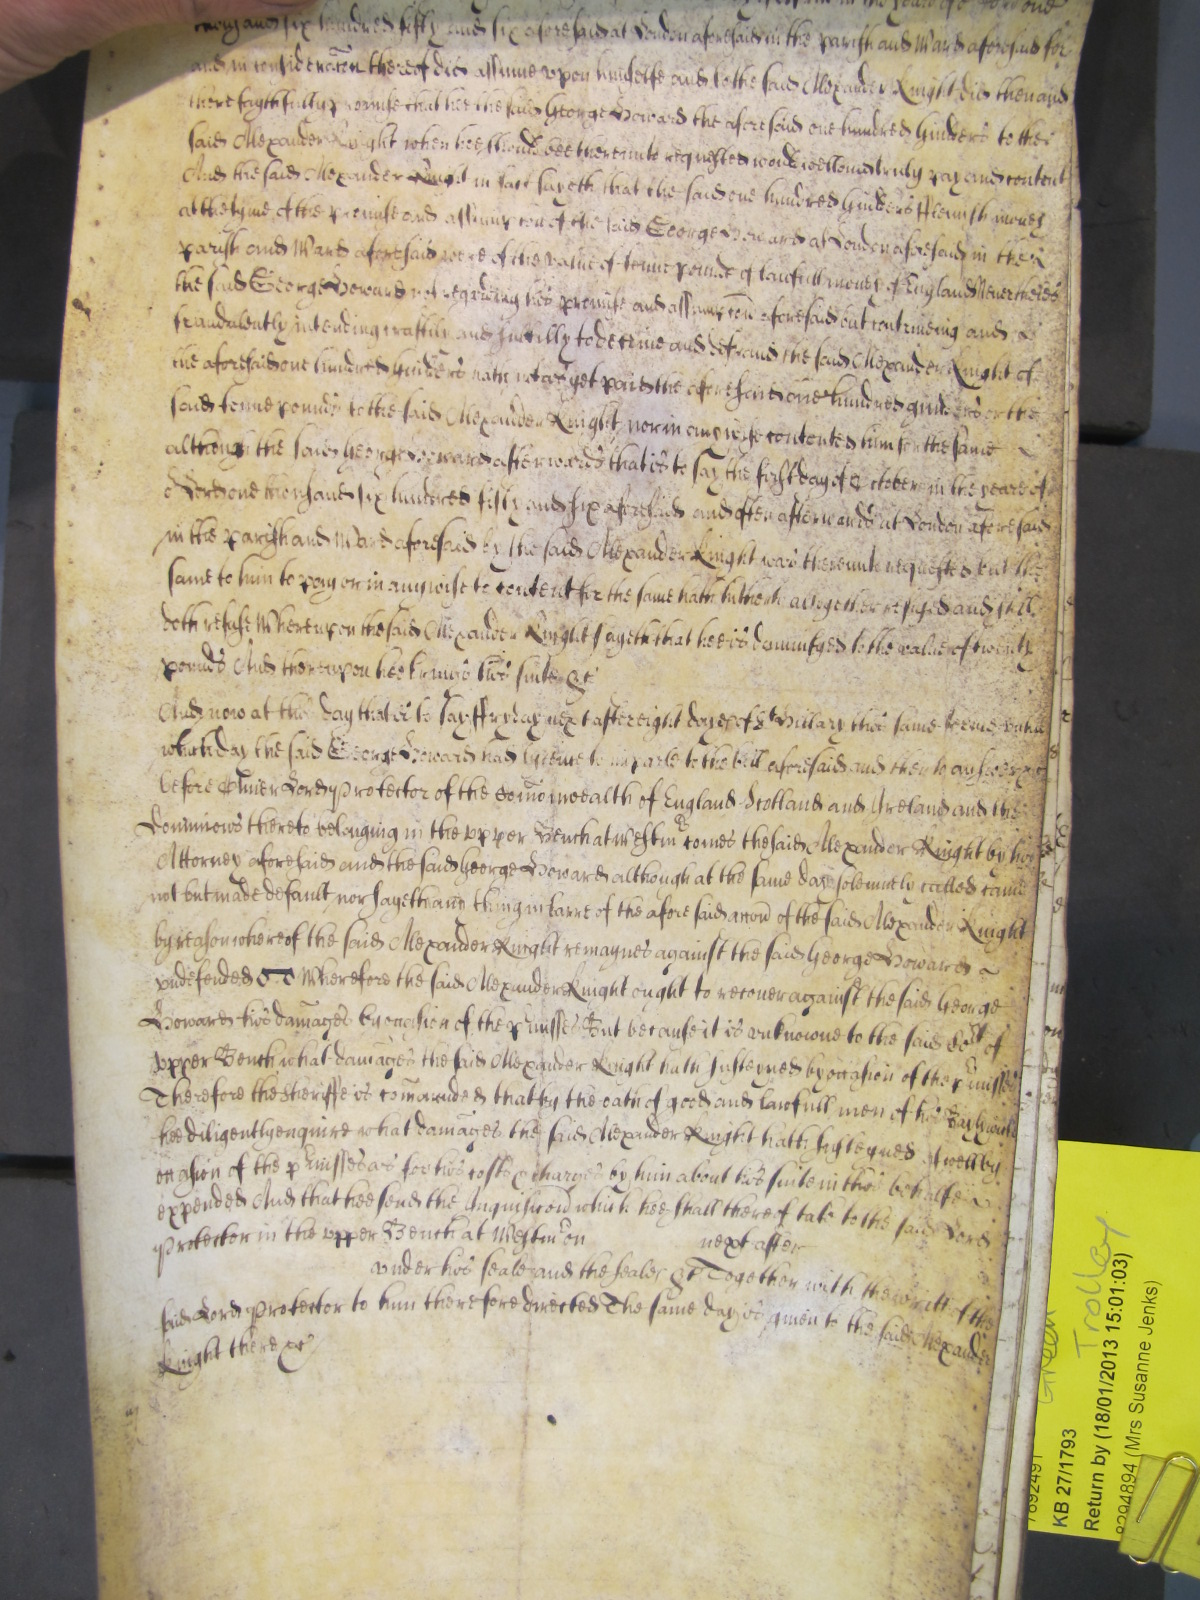 in the yeare of o Lord one
thousand six hundred fifty and six aforesaid at London aforesaid in the parish and Ward aforesaid for
and in consideracon thereof did assume vpon himselfe and to the said Alexander Knight did then and
there faythfully promise that hee the said George Howard the aforesaid one hundred Guilders to the
said Alexander Knight when hee should bee thereunto requested would well and truly pay and content
And the said Alexander Knight in fact sayeth that the said one hundred Guilders Flemish money
at the tyme of the promise and assumpcon of the said George Howard at London aforesaid in the
parish and Ward aforesaid were of the value of tenne pounds of lawfull money of England Neverthelес
the said George Howard not regarding his promise and assumpcon aforesaid but contriveing and
fraudulently intending craftily and subtilly to deceive and defraud the said Alexander Knight of
the aforesaid one hundred Guilders hath not as yet paid the aforesaid one hundred guilders or the
said tenne pounds to the said Alexander Knight nor in any wise contented him for the same
although the said George Howard afterwards that is to say the first day of October in the yeare of
o Lord one thousand six hundred fifty and six aforesaid and often afterwards at London aforesaid
in the parish and Ward aforesaid by the said Alexander Knight was thereunto requested but the
same to him to pay or in any wise to content for the same hath hitherto altogether refused and still
doth refuse Whereupon the said Alexander Knight sayeth that hee is damnifyed to the value of twenty
pounds And thereupon hee brings his suite &c
And now at this day that is to say Fryday next after eight dayes of St Hillary this same terme vntill
which day the said George Howard had lycence to imparle to the bill aforesaid and then to answere &c
before Oliver Lord Protector of the Comonwealth of England Scotland and Ireland and the
Dominions thereto belonging in the vpper Bench at Westmr comes the said Alexander Knight by his
Attorney aforesaid and the said George Howard although at the same day solemnely called came
not but made default nor sayeth any thing in barre of the aforesaid accon of the said Alexander Knight
by reason whereof the said Alexander Knight remaynes against the said George Howard
vndefended &c Wherefore the said Alexander Knight ought to recover against the said George
Howard his damages by occasion of the pmisses But because it is vnknowne to the said Cort of
vpper Bench what damages the said Alexander Knight hath susteyned by occasion of the pmisses
Therefore the Sheriffe is comaunded that by the oath of good and lawfull men of his Baylywick
hee diligently enquire what damages the said Alexander Knight hath susteyned Aswell by
occasion of the pmisses as for his costs & charges by him about his suite in this behalfe
expended And that hee send the Inquisicon which hee shall thereof take to the said Lord
Protector in the vpper Bench at Westmr on next after
vnder his seale and the seales &c Together with the writt of the
said Lord Protector to him therefore directed The same day is given to the said Alexander
Knight there &c
Green
Trolley
KB 27/1793
Return by (18/01/2013 15:01:03)
8294894 (Mrs Susanne Jenks)